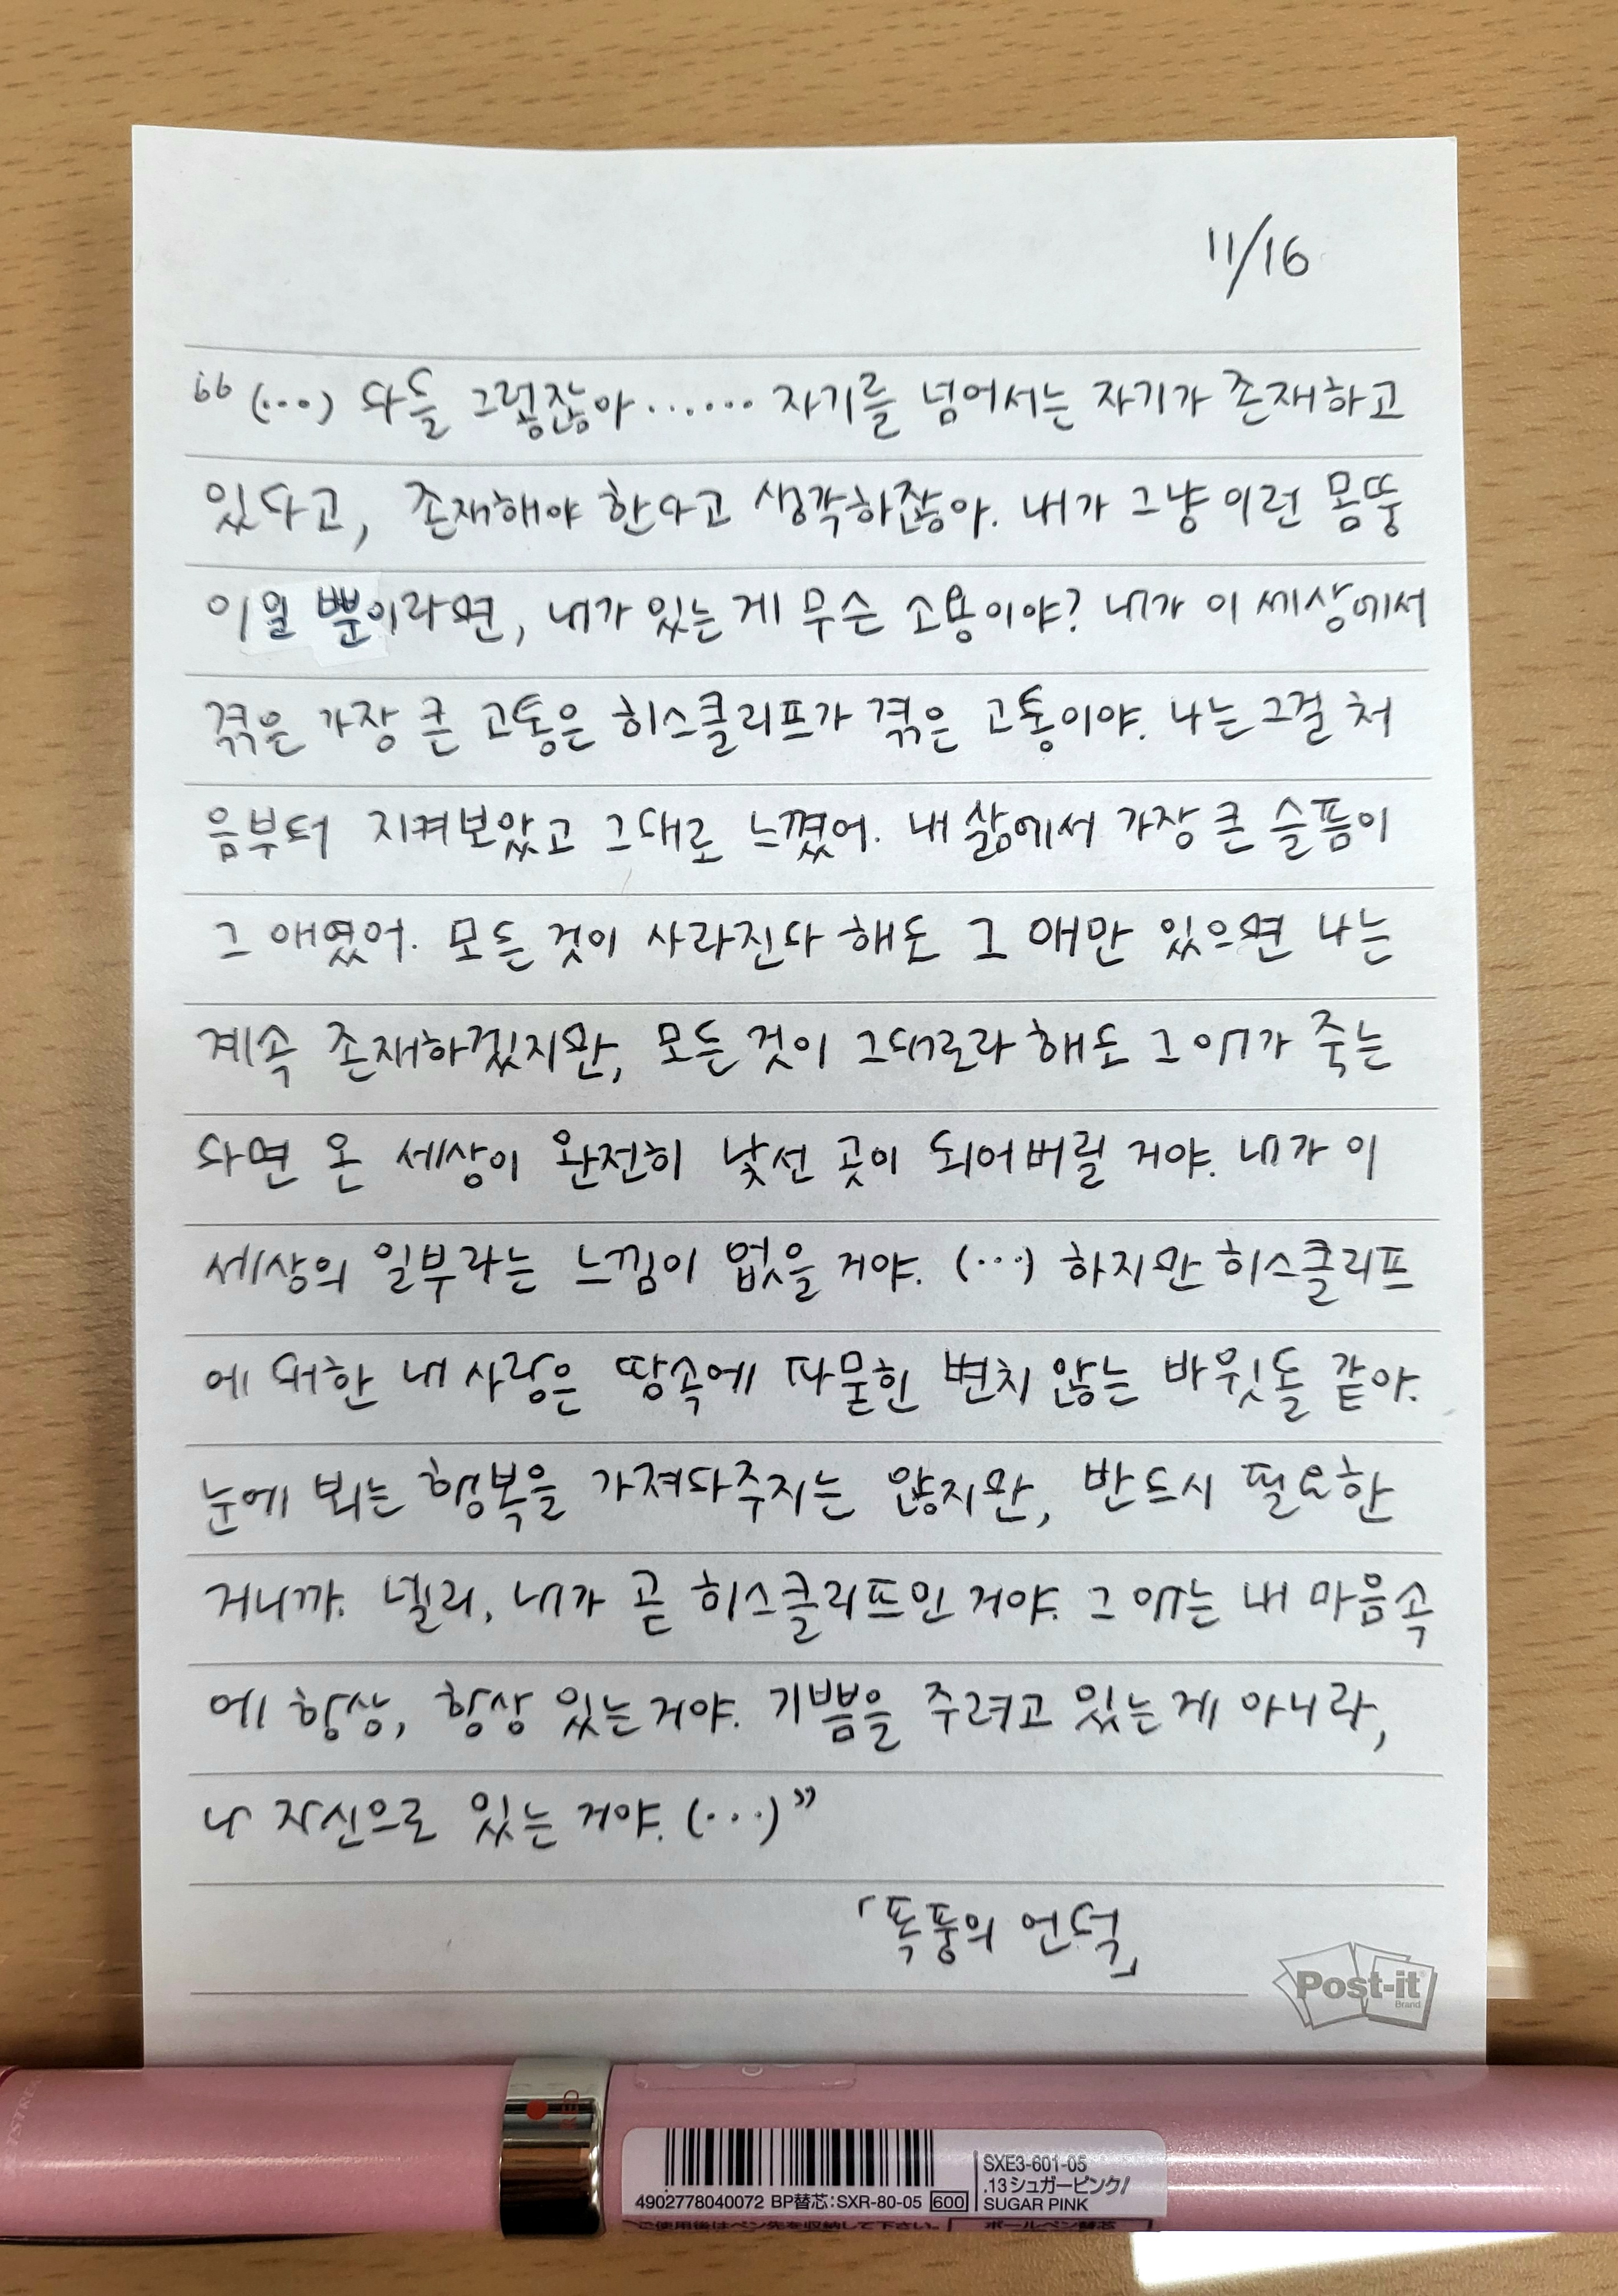 11/16
“(...) 다들 그렇잖아...... 자기를 넘어서는 자기가 존재하고
있다고, 존재해야 한다고 생각하잖아. 내가 그냥 이런 몸뚱
이일 뿐이라면, 내가 있는 게 무슨 소용이야? 내가 이 세상에서
겪은 가장 큰 고통은 히스클리프가 겪은 고통이야. 나는 그걸 처
음부터 지켜보았고 그대로 느꼈어. 내 삶에서 가장 큰 슬픔이
그 애였어. 모든 것이 사라진다 해도 그 애만 있으면 나는
계속 존재하겠지만, 모든 것이 그대로라 해도 그 애가 죽는
다면 온 세상이 완전히 낯선 곳이 되어버릴 거야. 내가 이
세상의 일부라는 느낌이 없을 거야. (...) 하지만 히스클리프
에 대한 내 사랑은 땅속에 파묻힌 변치 않는 바윗돌 같아.
눈에 뵈는 행복을 가져다주지는 않지만, 반드시 필요한
거니까. 넬리, 내가 곧 히스클리프인 거야. 그 애는 내 마음속
에 항상, 항상 있는 거야. 기쁨을 주려고 있는 게 아니라,
나 자신으로 있는 거야. (...)”
「폭풍의 언덕」
Post-it
Brand
RED
SXE3-601-05
.13シュガーピンク/
4902778040072 BP替芯:SXR-80-05 600 SUGAR PINK
ご使用後はペン先を収納して下さい。 ボールペン替芯